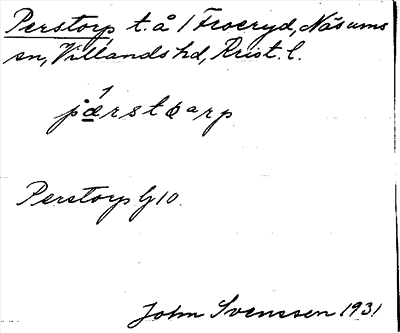 Perstorp t. å 1 Froeryd, Näsums
sn, Villands hd, Krist. l.
pæ̀rstɒarp
Perstorp G 10.
John Svensson 1931